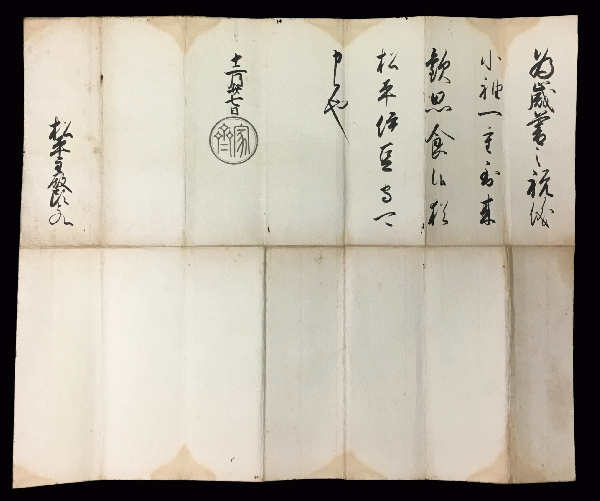 為歳暮之祝儀
小袖一重到来
歓思食候猶
松平伊豆守可
申候也
十二月廿七日
家齊
松平主殿頭とのへ